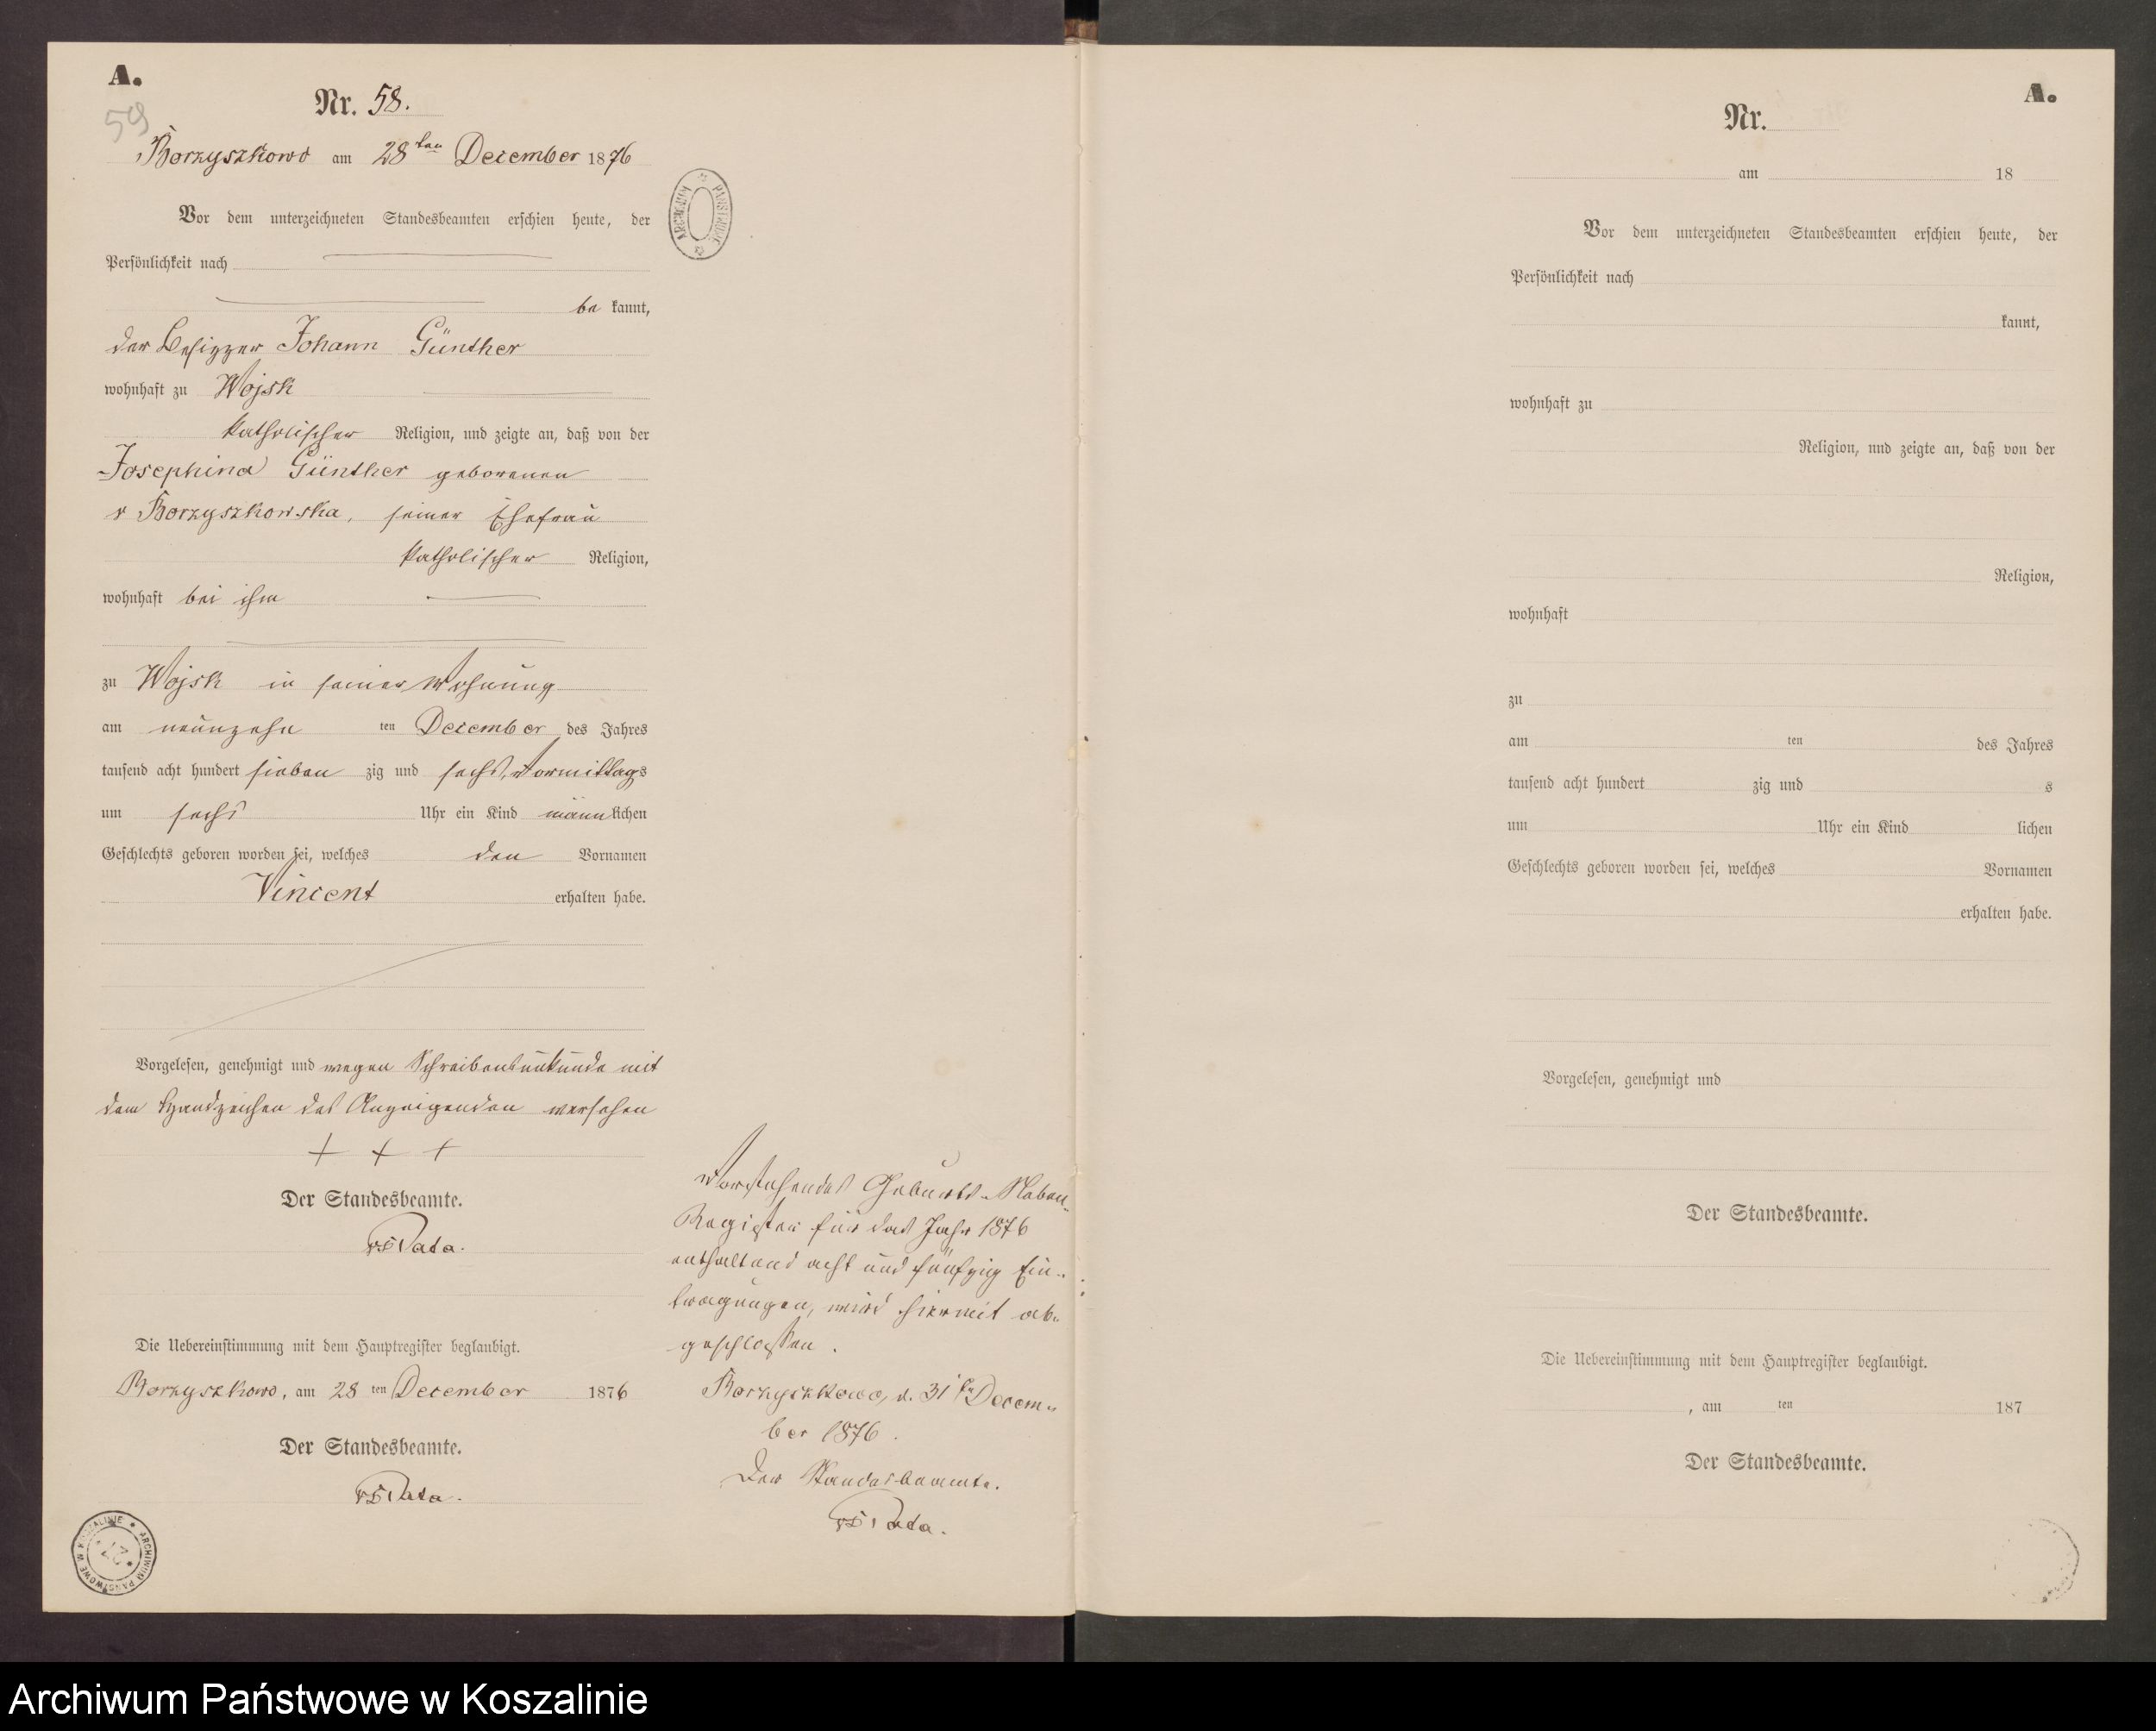 A.
59
Nr. 58.
Borzyszkowo am 28ten December 1876
Vor dem unterzeichneten Standesbeamten erschien heute, der
Persönlichkeit nach
be kannt,
der Besitzer Johann Günther
wohnhaft zu Wojsk
katholischer Religion, und zeigte an, daß von der
Josephina Günther geborenen
v Borzyszkowska, seiner Ehefrau
katholischer Religion,
wohnhaft bei ihm
zu Wojsk in seiner Wohnung
am neunzehn ten December des Jahres
tausend acht hundert sieben zig und sechs, Vormittags
um sechs Uhr ein Kind männlichen
Geschlechts geboren worden sei, welches den Vornamen
Vincent erhalten habe.
Vorgelesen, genehmigt und wegen Schreibensunkunde mit
dem Handzeichen des Anzeigenden versehen
+ + +
Der Standesbeamte.
Pata.
Die Uebereinstimmung mit dem Hauptregister beglaubigt.
Borzyszkowo, am 28 ten December 1876
Der Standesbeamte.
Pata.
ARCHIWUM PAŃSTWOWE W KOSZALINIE
27
ARCHIWUM PAŃSTWOWE
Vorstehendes Geburts-Neben-
Register für das Jahr 1876
enthaltend acht und fünfzig Ein-
tragungen, wird hiermit ab-
geschlossen.
Borzyszkowo, d. 31ten Decem-
ber 1876.
Der Standesbeamte.
Pata.
A.
Nr.
am 18
Vor dem unterzeichneten Standesbeamten erschien heute, der
Persönlichkeit nach
kannt,
wohnhaft zu
Religion, und zeigte an, daß von der
Religion,
wohnhaft
zu
am ten des Jahres
tausend acht hundert zig und s
um Uhr ein Kind lichen
Geschlechts geboren worden sei, welches Vornamen
erhalten habe.
Vorgelesen, genehmigt und
Der Standesbeamte.
Die Uebereinstimmung mit dem Hauptregister beglaubigt.
, am ten 187
Der Standesbeamte.
Archiwum Państwowe w Koszalinie